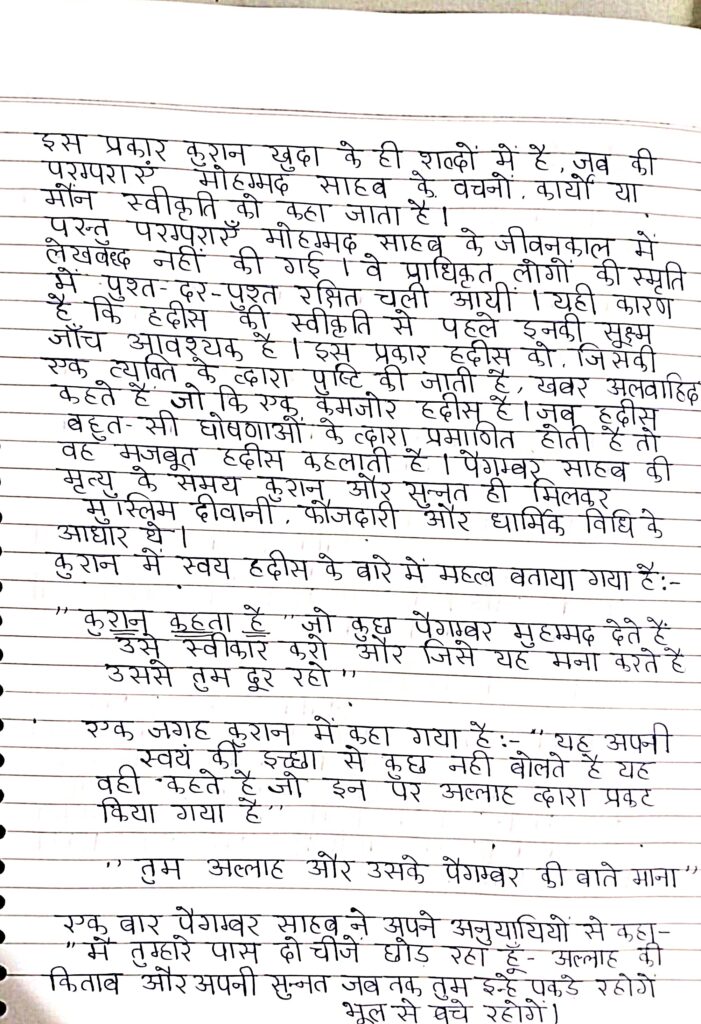 इस प्रकार कुरान खुदा के ही शब्दों में है, जब की
परम्पराएं मोहम्मद साहब के वचनों, कार्यों या
मौन स्वीकृति को कहा जाता है।
परन्तु परम्पराएँ मोहम्मद साहब के जीवनकाल में
लेखबध्द नहीं की गई। वे प्राधिकृत लोगों की स्मृति
में पुश्त-दर-पुश्त रक्षित चली आयीं। यही कारण
है कि हदीस की स्वीकृति से पहले इनकी सूक्ष्म
जाँच आवश्यक है। इस प्रकार हदीस को, जिसकी
एक व्यक्ति के द्वारा पुष्टि की जाती है, खबर अलवाहिद
कहते है जो कि एक कमजोर हदीस है। जब हदीस
बहुत-सी घोषणाओं के द्वारा प्रमाणित होती है तो
वह मजबूत हदीस कहलाती है। पैगम्बर साहब की
मृत्यु के समय कुरान और सुन्नत ही मिलकर
मुस्लिम दीवानी, फौजदारी और धार्मिक विधि के
आधार थे।
कुरान में स्वय हदीस के बारे में महत्व बताया गया है:-
"कुरान कहता है "जो कुछ पैगम्बर मुहम्मद देते हैं
उसे स्वीकार करो और जिसे यह मना करते है
उससे तुम दूर रहो"
एक जगह कुरान में कहा गया है:- "यह अपनी
स्वयं की इच्छा से कुछ नही बोलते है यह
वही कहते है जो इन पर अल्लाह द्वारा प्रकट
किया गया है"
"तुम अल्लाह और उसके पैगम्बर की बाते माना"
एक बार पैगम्बर साहब ने अपने अनुयायियों से कहा-
"मै तुम्हारे पास दो चीजें छोड रहा हूँ- अल्लाह की
किताब और अपनी सुन्नत जब तक तुम इन्हे पकडे रहोगें
भूल से बचे रहोगें।